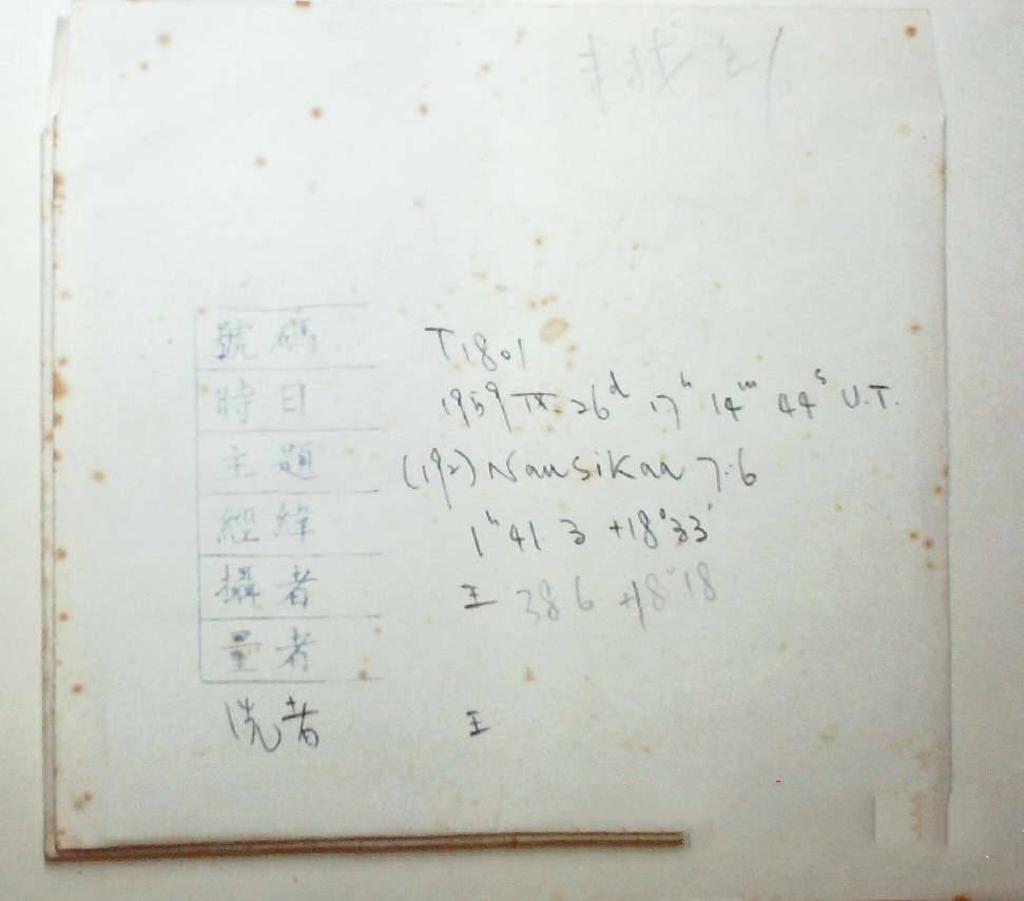 號碼 T1801
時日 1959 IX. 26d 17h 14m 44s U.T.
主題 (192) Nausikaa 7.6
經緯 1h 41 3 +18°33'
攝者 王 38 6 +18°18
量者
洗者 王